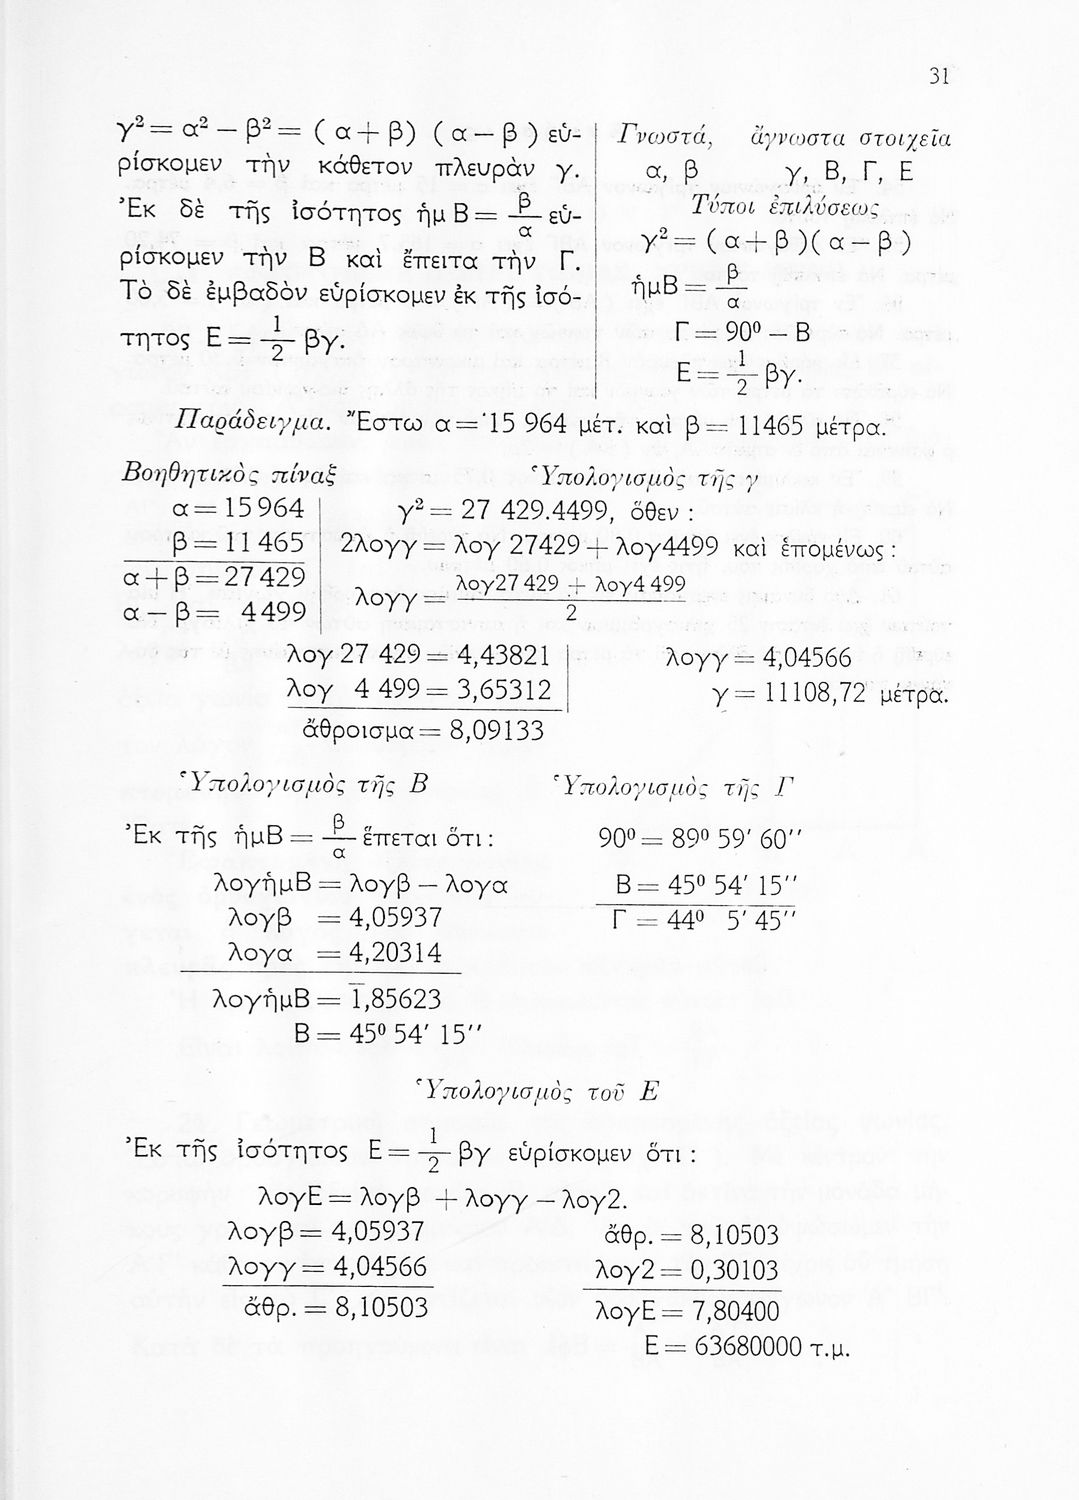 31
γ² = α² — β² = ( α + β) ( α — β ) εὑ-
ρίσκομεν τὴν κάθετον πλευρὰν γ.
Ἐκ δὲ τῆς ἰσότητος ἡμ Β = β/α εὑ-
ρίσκομεν τὴν Β καὶ ἔπειτα τὴν Γ.
Τὸ δὲ ἐμβαδὸν εὑρίσκομεν ἐκ τῆς ἰσό-
τητος Ε = 1/2 βγ.
Γνωστά, ἄγνωστα στοιχεῖα
α, β γ, Β, Γ, Ε
Τύποι ἐπιλύσεως
γ² = ( α + β )( α — β )
ἡμΒ = β/α
Γ = 90⁰ — Β
Ε = 1/2 βγ.
Παράδειγμα. Ἔστω α = 15 964 μέτ. καὶ β = 11465 μέτρα.
Βοηθητικὸς πίναξ
α = 15 964
β = 11 465
α + β = 27 429
α — β = 4499
Ὑπολογισμὸς τῆς γ
γ² = 27 429.4499, ὅθεν :
2λογγ = λογ 27429 + λογ4499 καὶ ἑπομένως :
λογγ = λογ27 429 + λογ4 499/2
λογ 27 429 = 4,43821
λογ 4 499 = 3,65312
ἄθροισμα = 8,09133
λογγ = 4,04566
γ = 11108,72 μέτρα.
Ὑπολογισμὸς τῆς Β
Ἐκ τῆς ἡμΒ = β/α ἕπεται ὅτι :
λογἡμΒ = λογβ — λογα
λογβ = 4,05937
λογα = 4,20314
λογἡμΒ = 1̅,85623
Β = 45⁰ 54′ 15″
Ὑπολογισμὸς τῆς Γ
90⁰ = 89⁰ 59′ 60″
Β = 45⁰ 54′ 15″
Γ = 44⁰ 5′ 45″
Ὑπολογισμὸς τοῦ Ε
Ἐκ τῆς ἰσότητος Ε = 1/2 βγ εὑρίσκομεν ὅτι :
λογΕ = λογβ + λογγ — λογ2.
λογβ = 4,05937
λογγ = 4,04566
ἄθρ. = 8,10503
ἄθρ. = 8,10503
λογ2 = 0,30103
λογΕ = 7,80400
Ε = 63680000 τ.μ.